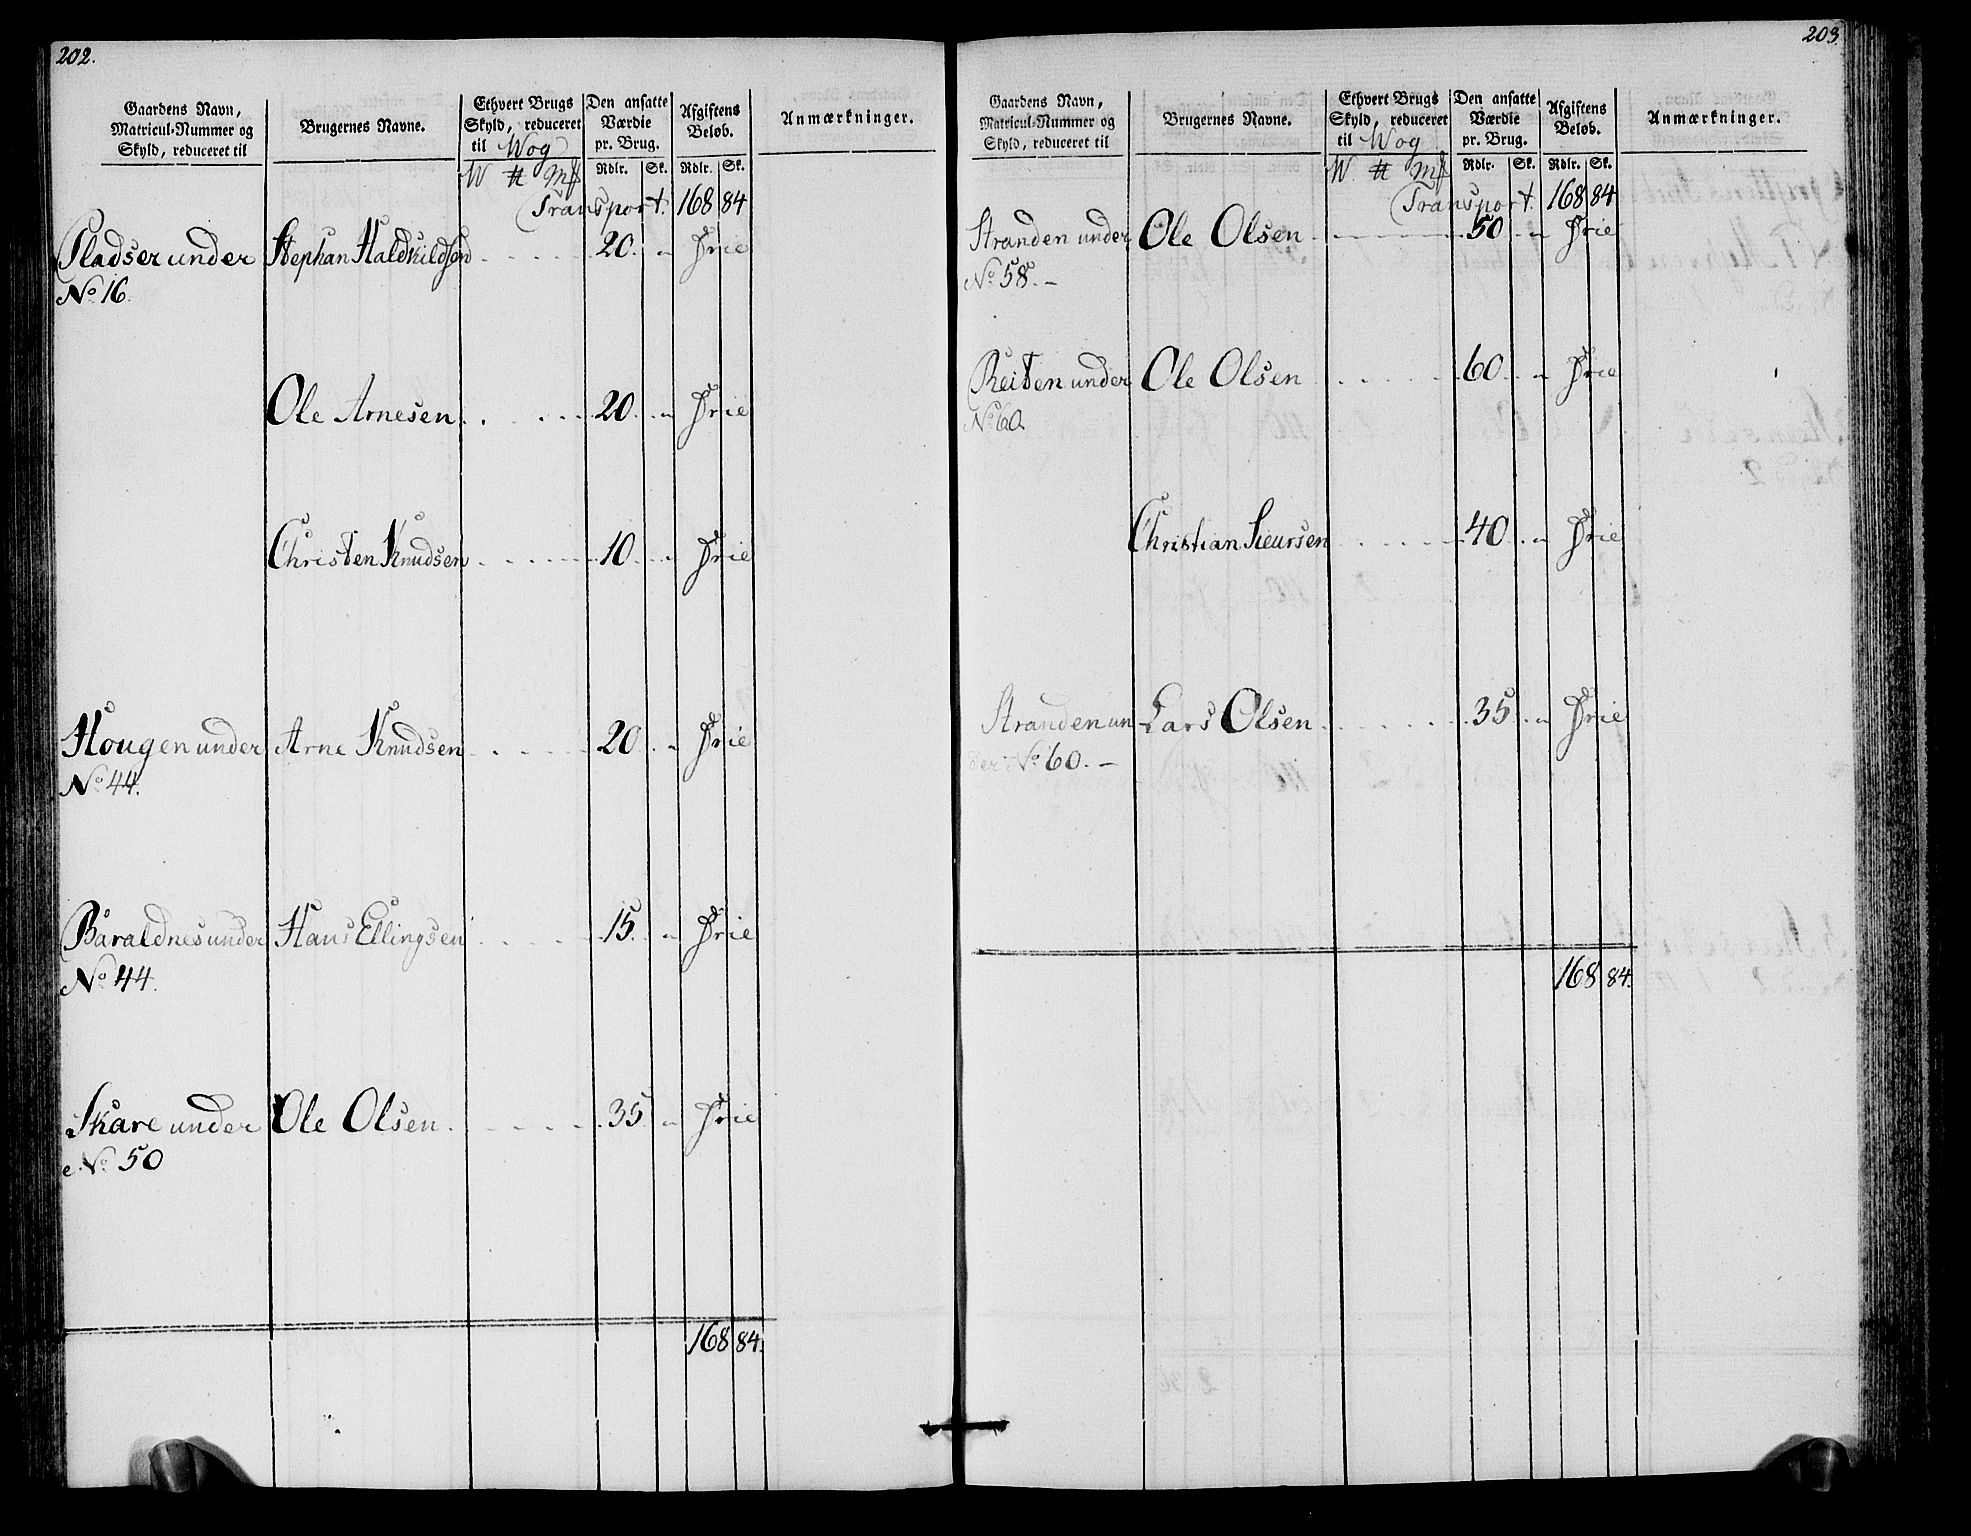 202.
Gaardens Navn, Matricul-Nummer og Skyld, reduceret til
Brugernes Navne.
Ethvert Brugs Skyld, reduceret til Wog
Den ansatte Værdie pr. Brug.
Afgiftens Beløb.
Anmærkninger.
W # Mk
Rdlr. Sk. Rdlr. Sk.
Transport. 168 84
Pladser under Stephan Haldkildsen 20 " Frie
No 16.
Ole Arnesen 20 " Frie
Christen Knudsen 10 " Frie
Hougen under Arne Knudsen 20 " Frie
No 44.
Baraldnes under Hans Ellingsen 15 " Frie
No 44.
Skare under Ole Olsen 35 " Frie
No 50
168 84.
203.
Gaardens Navn, Matricul-Nummer og Skyld, reduceret til
Brugernes Navne.
Ethvert Brugs Skyld, reduceret til Wog
Den ansatte Værdie pr. Brug.
Afgiftens Beløb.
Anmærkninger.
W # Mk
Rdlr. Sk. Rdlr. Sk.
Transport. 168 84
Stranden under Ole Olsen 50 " Frie
No 58. –
Reiten under Ole Olsen 60 " Frie
No 60.
Christian Sieursen 40 " Frie
Stranden un Lars Olsen 35 " Frie
der No 60. –
168 84.